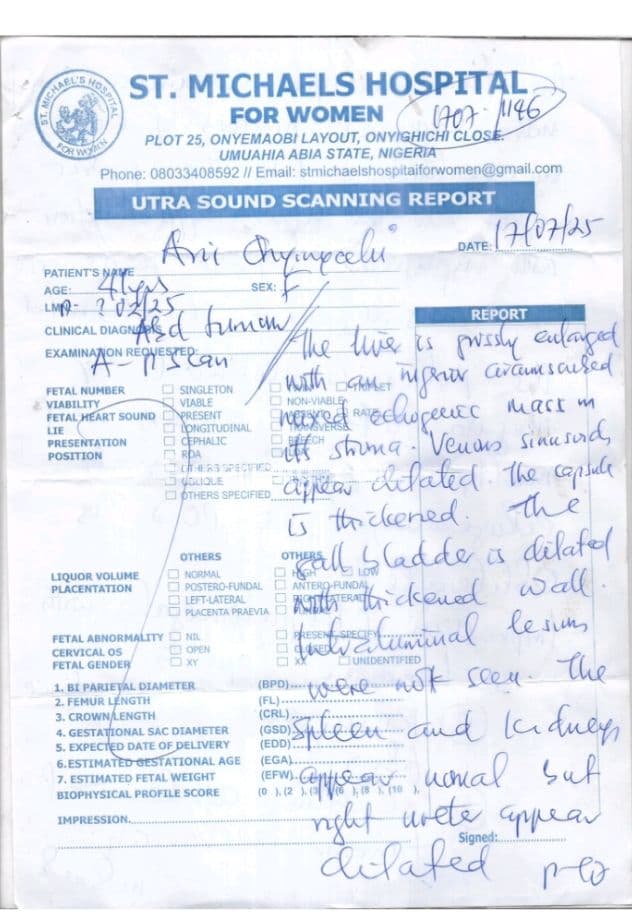 ST. MICHAEL'S HOSPITAL
FOR WOMEN
ST. MICHAELS HOSPITAL
FOR WOMEN
1707 / 1146
PLOT 25, ONYEMAOBI LAYOUT, ONYIGHICHI CLOSE.
UMUAHIA ABIA STATE, NIGERIA
Phone: 08033408592 // Email: stmichaelshospitaiforwomen@gmail.com
UTRA SOUND SCANNING REPORT
DATE: 17/07/25
PATIENT'S NAME
AGE: 41yrs SEX: F
LMP- ? 02/25
CLINICAL DIAGNOSIS Abd tumour
EXAMINATION REQUESTED: A-P Scan
REPORT
The liver is grossly enlarged
with an circumscribed
mixed echogenic mass in
its stroma. Venous sinusoids
appear dilated. The capsule
is thickened. The
gall bladder is dilated
with thickened wall.
Intraluminal lesions
were not seen. The
spleen and kidneys
appear normal but
right ureter appear
dilated
FETAL NUMBER SINGLETON
VIABILITY VIABLE NON-VIABLE
FETAL HEART SOUND PRESENT RATE
LIE LONGITUDINAL TRANSVERSE
PRESENTATION CEPHALIC BREECH
POSITION ROA
OTHERS SPECIFIED
OBLIQUE
OTHERS SPECIFIED
OTHERS OTHERS
LIQUOR VOLUME NORMAL HIGH LOW
PLACENTATION POSTERO-FUNDAL ANTERO-FUNDAL
LEFT-LATERAL
PLACENTA PRAEVIA
FETAL ABNORMALITY NIL PRESENT SPECIFY
CERVICAL OS OPEN CLOSED
FETAL GENDER XY XX UNIDENTIFIED
1. BI PARIETAL DIAMETER (BPD)
2. FEMUR LENGTH (FL)
3. CROWN LENGTH (CRL)
4. GESTATIONAL SAC DIAMETER (GSD)
5. EXPECTED DATE OF DELIVERY (EDD)
6. ESTIMATED GESTATIONAL AGE (EGA)
7. ESTIMATED FETAL WEIGHT (EFW)
BIOPHYSICAL PROFILE SCORE (0 ), (2 ), (6 ), (8 ), (10 ).
IMPRESSION.
Signed: